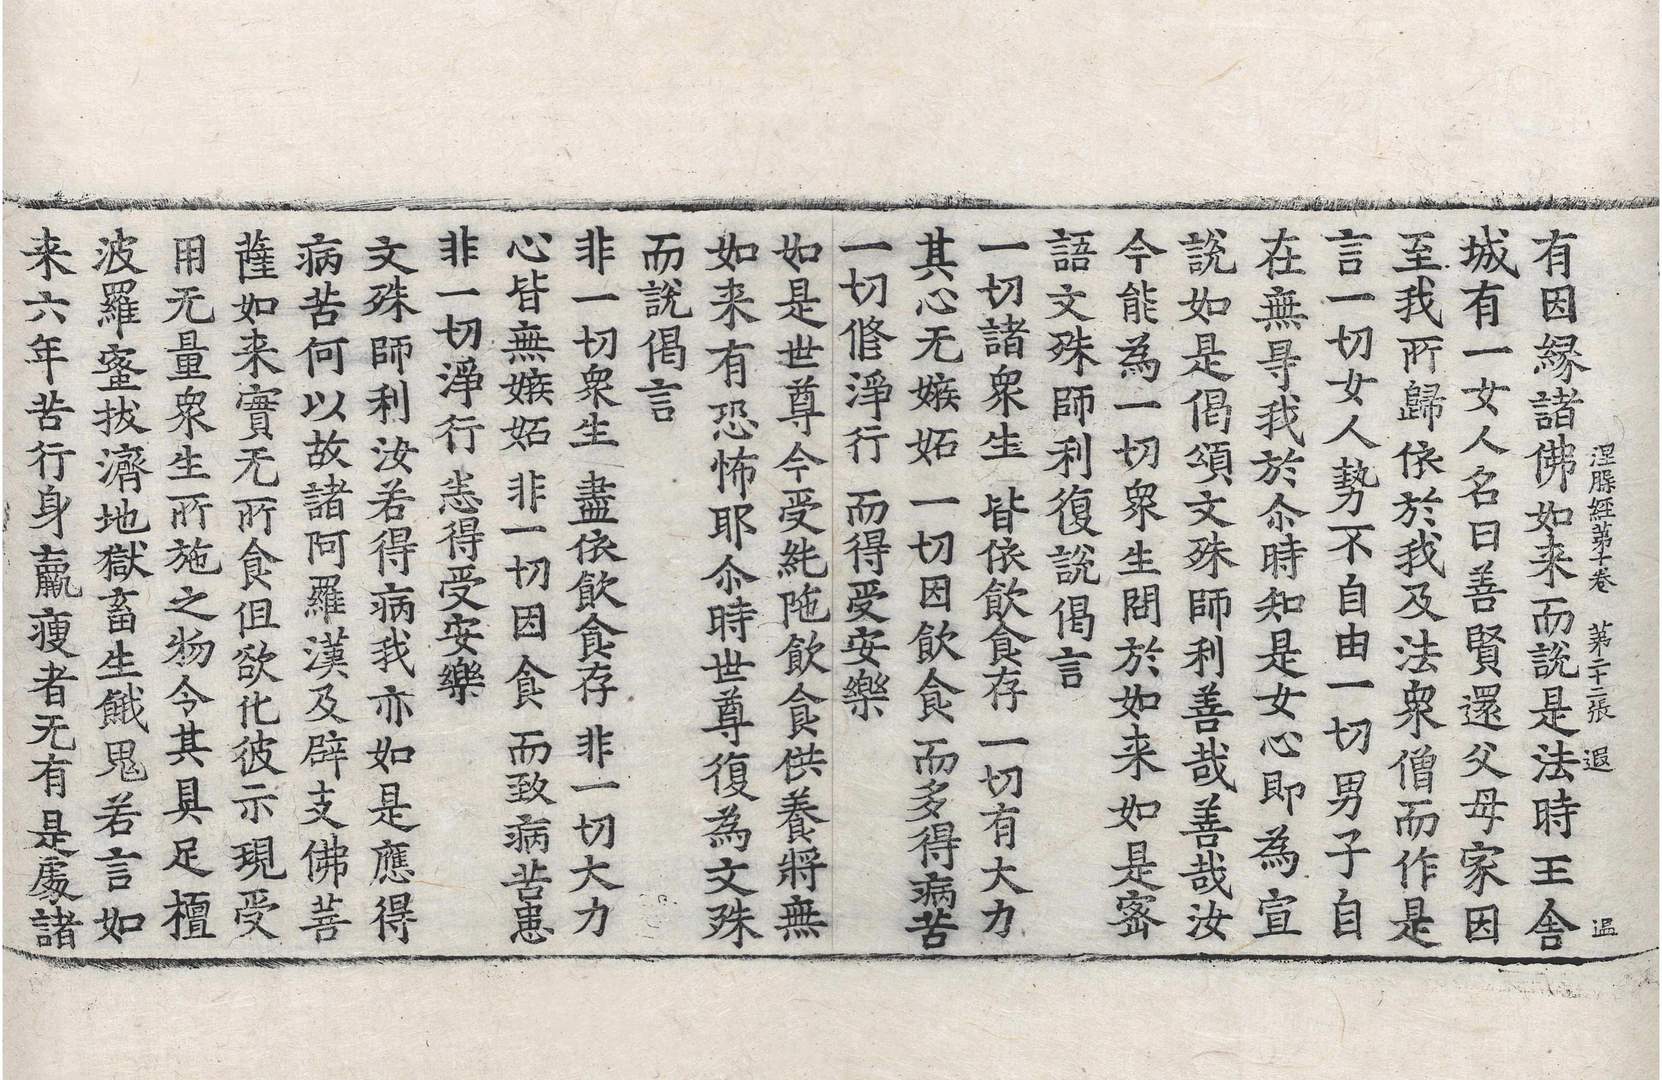 涅槃經第十卷 第二十二張 遐
有因縁諸佛如来而說是法時王舎
城有一女人名曰善賢還父母家因
至我所歸依於我及法衆僧而作是
言一切女人勢不自由一切男子自
在無㝵我於尒時知是女心即為宣
說如是偈頌文殊師利善哉善哉汝
今能為一切衆生問於如来如是宻
語文殊師利復說偈言
一切諸衆生 皆依飲食存 一切有大力
其心无嫉妬 一切因飲食 而多得病苦
一切修淨行 而得受安樂
如是世尊今受純陁飲食供養將無
如来有恐怖耶尒時世尊復為文殊
而說偈言
非一切衆生 盡依飲食存 非一切大力
心皆無嫉妬 非一切因食 而致病苦患
非一切淨行 悉得受安樂
文殊師利汝若得病我亦如是應得
病苦何以故諸阿羅漢及辟支佛菩
薩如来實无所食但欲化彼示現受
用无量衆生所施之物令其具足檀
波羅蜜拔濟地獄畜生餓鬼若言如
来六年苦行身羸瘦者无有是處諸